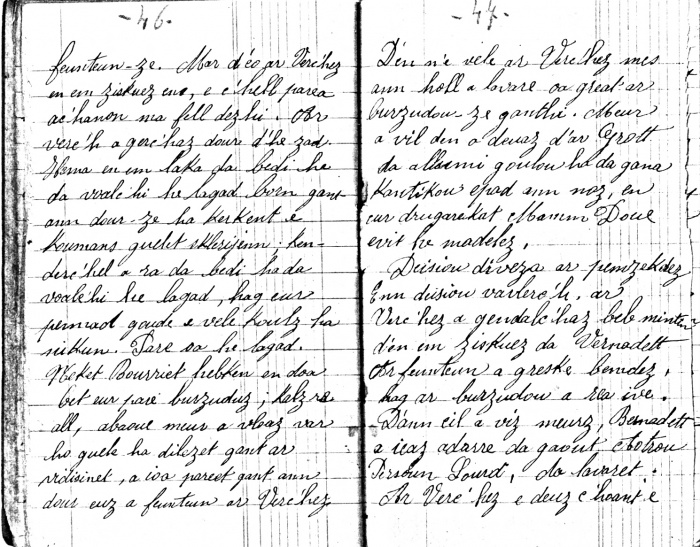 - 46. -
feunteun-ze. Mar d'eo ar Verc'hez
en em ziskuez eno, e c'hell parea
ac'hanon ma fell dezhi. Ar
verc'h a gerc'haz dour d'he zad.
Hema en em laka da bedi he
da voalc'hi he lagad born gant
ann dour-ze ha kerkent e
koumans guelet sklerijenn; ken-
derc'hel a ra da bedi ha da
voalc'hi he lagad, hag eur
pennad goude e vele koulz ha
nikun. Pare oa he lagad.
Neket Bourriet hebken en doa
bet eur pare burzuduz; kalz re
all, abaoue meur a vloaz var
ho guele ha dilezet gant ar
vidisinet, a ioa pareet gant ann
dour euz a feunteun ar Verc'hez
- 47. -
Den n'e vele ar Verc'hez mes
ann holl a lavare oa great ar
burzudou-ze ganthi. Meur
a vil den a deuaz d'ar Grott
da allumi goulou ha da gana
kantikou epad ann noz, en
eur drugarekat Mamm Doue
evit he madelez.
Deisiou diveza ar pemzekdez
Enn deisiou varlerc'h, ar
Verc'hez a gendalc'haz beb mintin
d'en em ziskuez da Vernadett
Ar feunteun a greske bemdez,
hag ar burzudou a rea ive.
D'ann eil a viz meurz, Bernadett
a ieaz adarre da gaout Aotrou
Person Lourd, da lavaret:
Ar Verc'hez e deuz c'hoant e